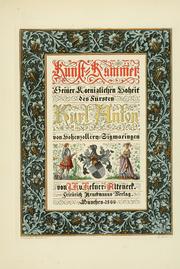 Kunst-Kammer
Seiner Koeniglichen Hoheit
des Fürsten
Karl Anton
von Hohenzollern-Sigmaringen
von J.H.v. Hefner-Alteneck.
Friedrich Bruckmanns Verlag.
München 1866